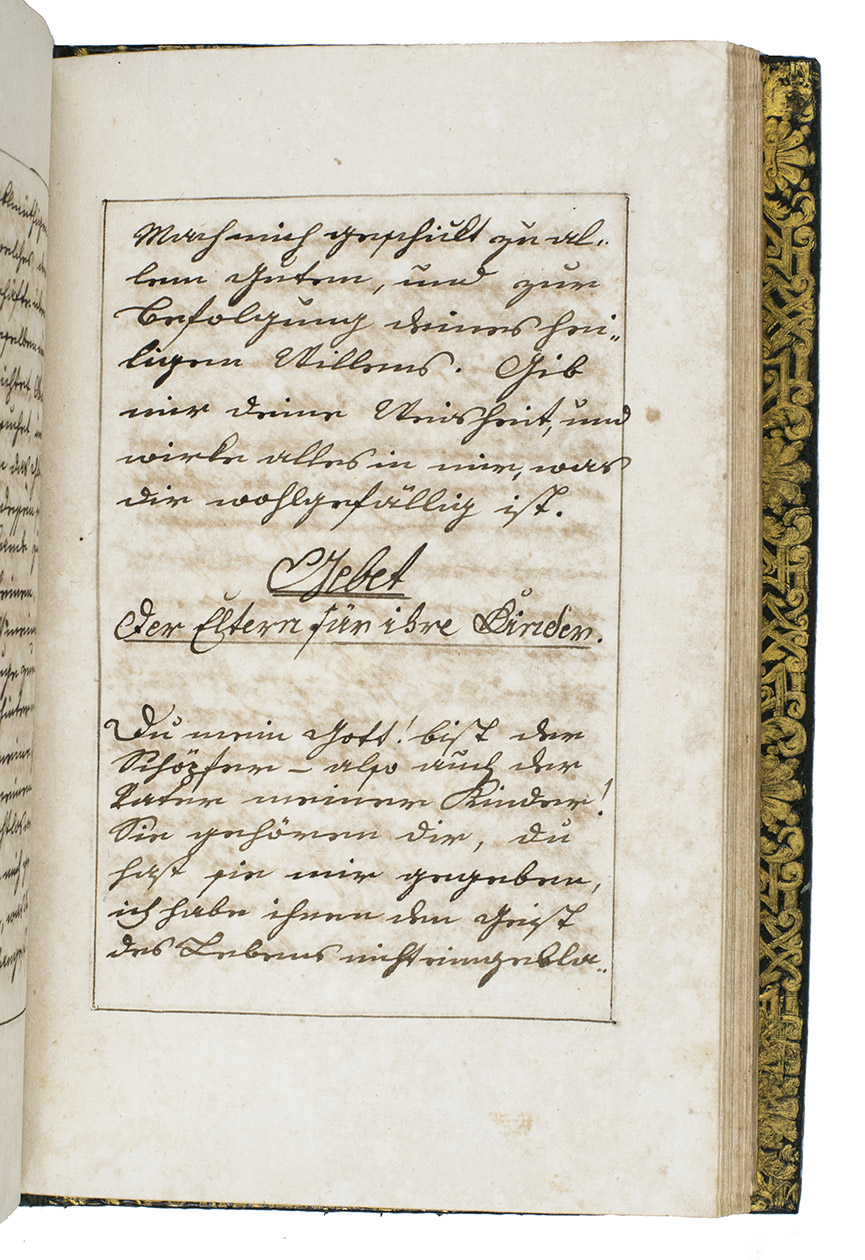 Mach mich geschikt zu al-
lem Guten, und zur
Befolgung deines hei-
ligen Willens. Gib
mir deine Weisheit, und
wirke alles in mir, was
dir wohlgefällig ist.
Gebet
Der Eltern für ihre Kinder.
Du mein Gott! bist der
Schöpfer – also auch der
Vater meiner Kinder!
Sie gehören dir, du
hast sie mir gegeben,
ich habe ihnen den Geist
des Lebens nicht eingebla-